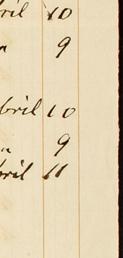 ril 10
" 9
bril 10
" 9
pril 11